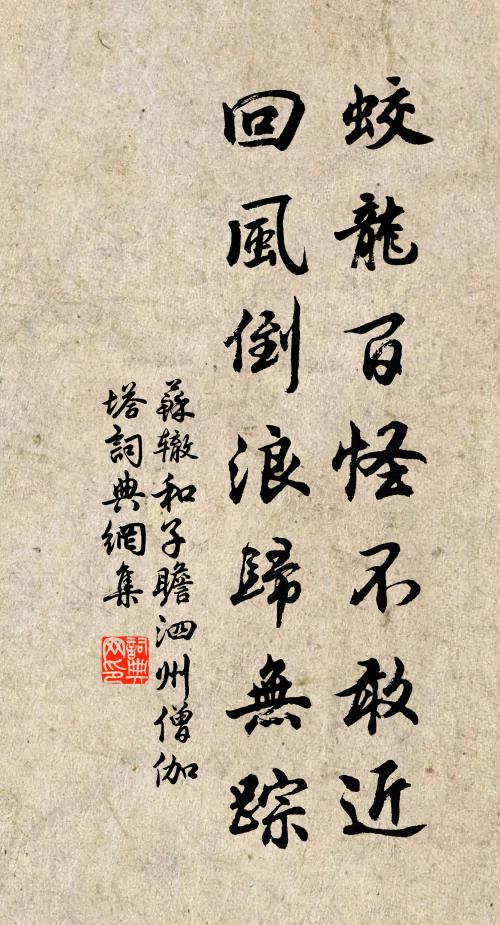 蛟龍百怪不敢近
回風倒浪歸無踪
蘇辙和子瞻泗州僧伽
塔詞典網集
詞典
网印